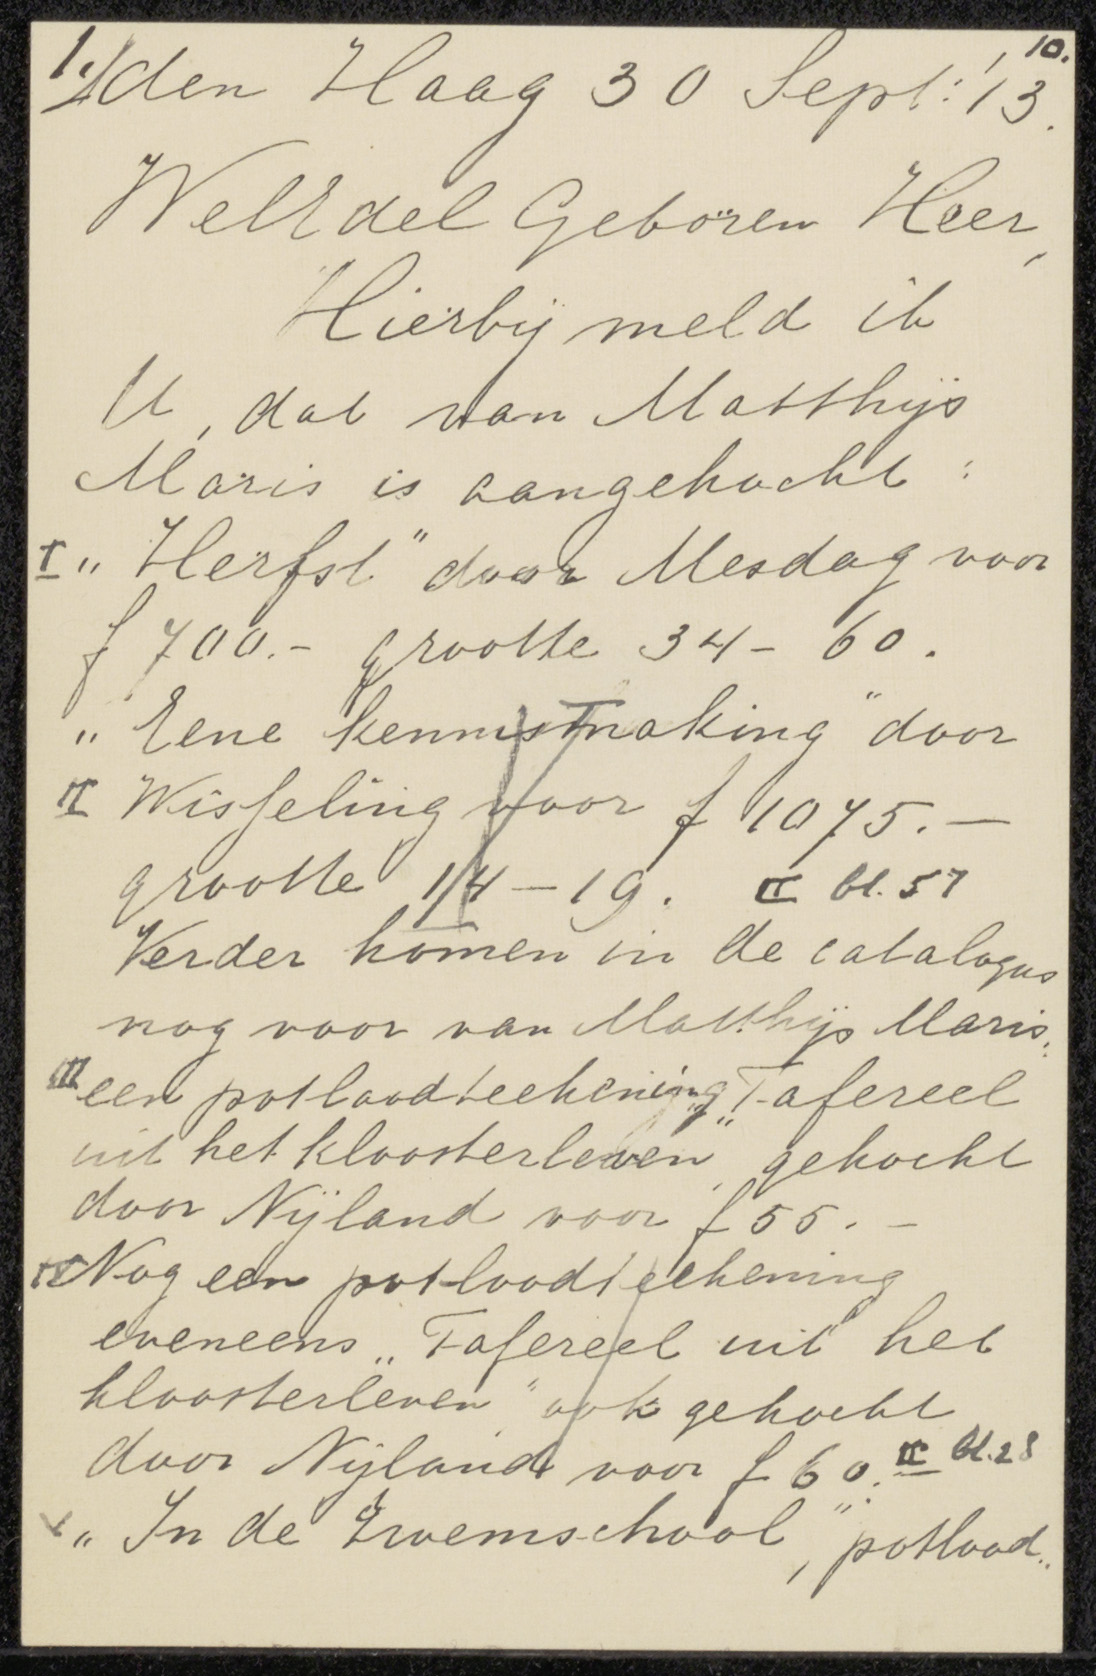 10.
1.) den Haag 30 Sept: '13.
WelEdel Geboren Heer,
Hierbij meld ik
U, dat van Matthijs
Maris is aangekocht:
I „Herfst" door Mesdag voor
f 700.- grootte 34 - 60.
„Eene kennismaking" door
II Wisseling voor f 1075.—
grootte 14 - 19. II bl. 57
Verder komen in de catalogus
nog voor van Matthijs Maris:
III een potloodteekening „Tafereel
uit het kloosterleven, gekocht
door Nijland voor f 55.-
IV Nog een potloodteekening
eveneens „Tafereel uit het
kloosterleven" ook gekocht
door Nijland voor f 60. II bl. 28
„In de Zwemschool", potlood..